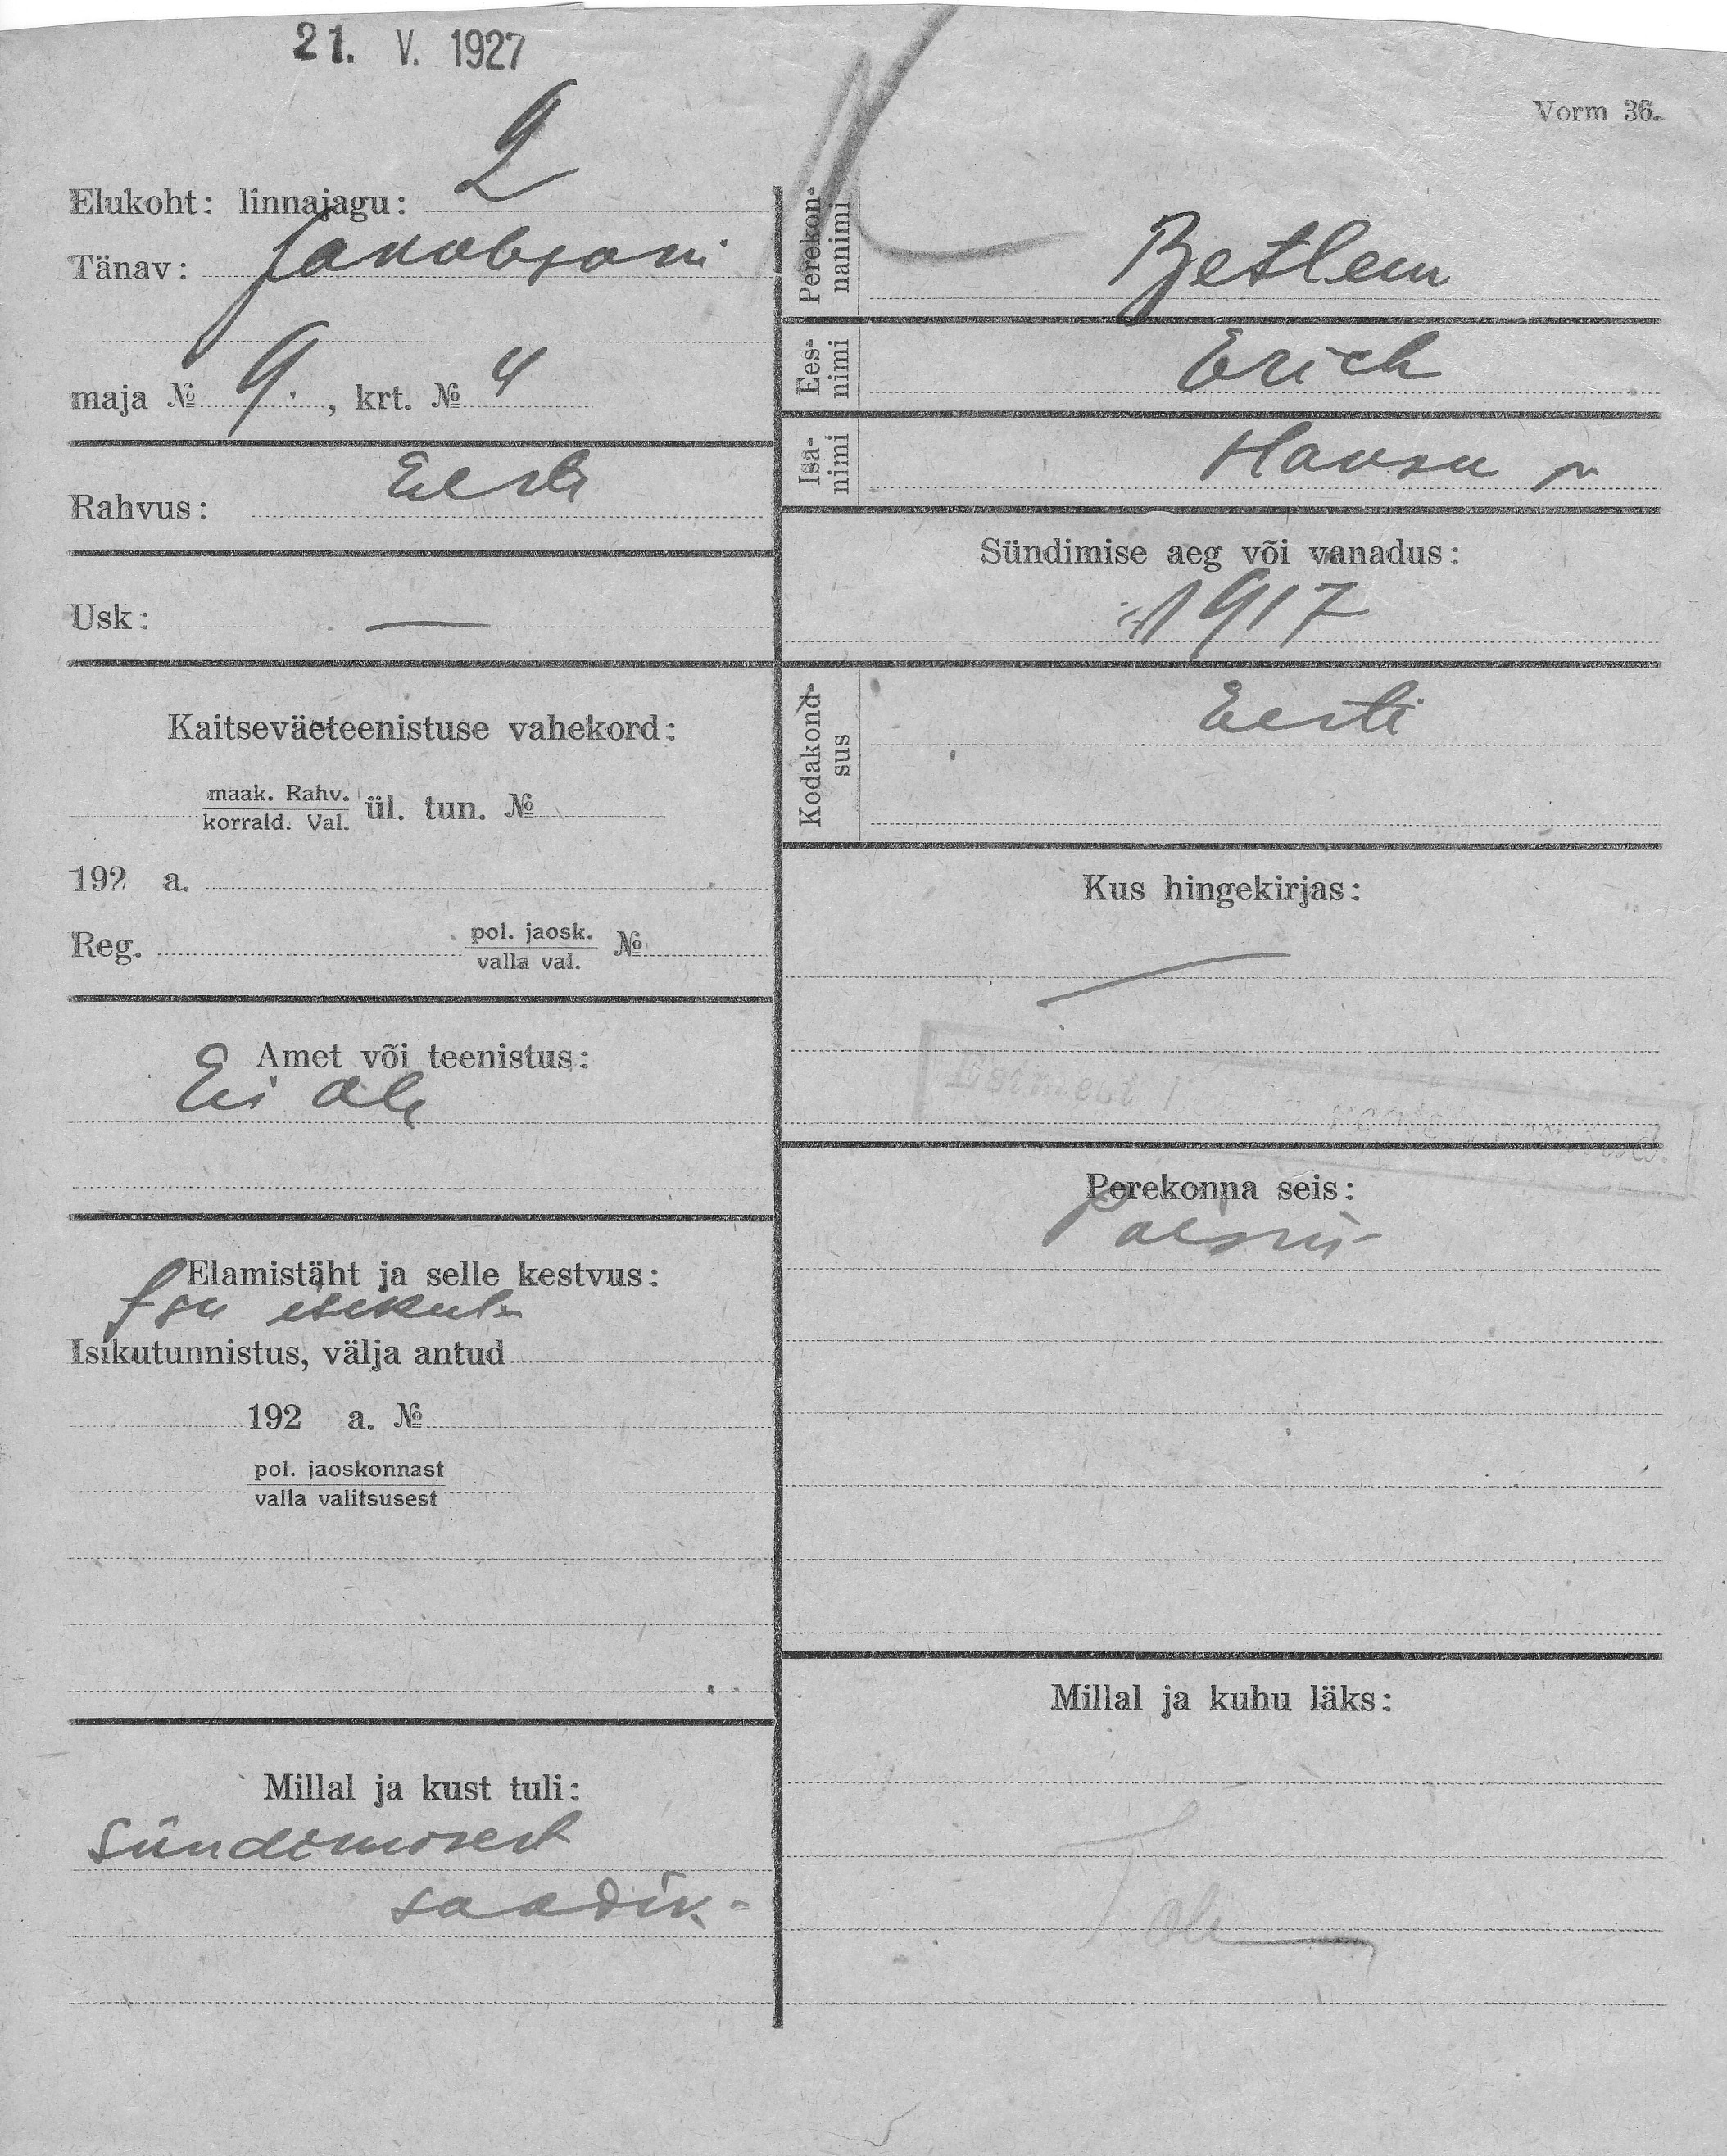 21. V. 1927
Vorm 36.
Elukoht: linnajagu: 2
Tänav: Jakobsoni
maja № 9. , krt. № 4
Rahvus: Eesti
Usk: —
Kaitseväeteenistuse vahekord:
maak. Rahv.
korrald. Val. ül. tun. №
192 a.
Reg. pol. jaosk. №
valla val.
Amet või teenistus:
Ei ole
Elamistäht ja selle kestvus:
Isikutunnistus, välja antud
192 a. №
pol. jaoskonnast
valla valitsusest
Millal ja kust tuli:
Sündimisest
saadik.
Perekon-
nanimi
Betlem
Ees-
nimi
Erich
Isa-
nimi
Hansu p
Sündimise aeg või vanadus:
1917
Kodakond-
sus
Eesti
Kus hingekirjas:
—
Perekonna seis:
Millal ja kuhu läks: